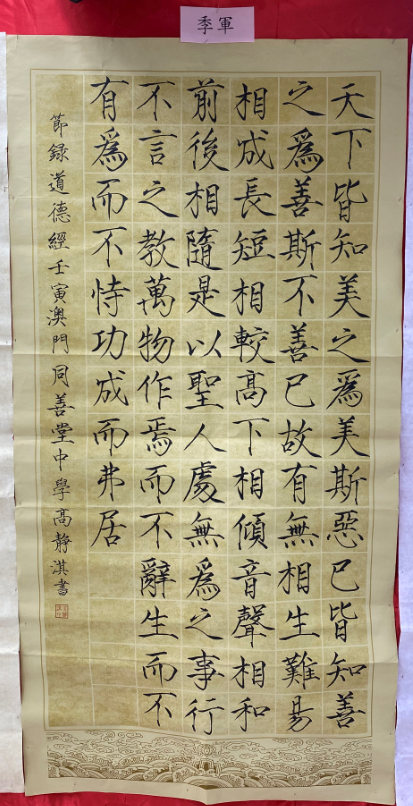 季軍
天下皆知美之為美斯惡已皆知善
之為善斯不善已故有無相生難易
相成長短相較高下相傾音聲相和
前後相隨是以聖人處無為之事行
不言之教萬物作焉而不辭生而不
有為而不恃功成而弗居
節録道德經壬寅澳門同善堂中學高靜淇書